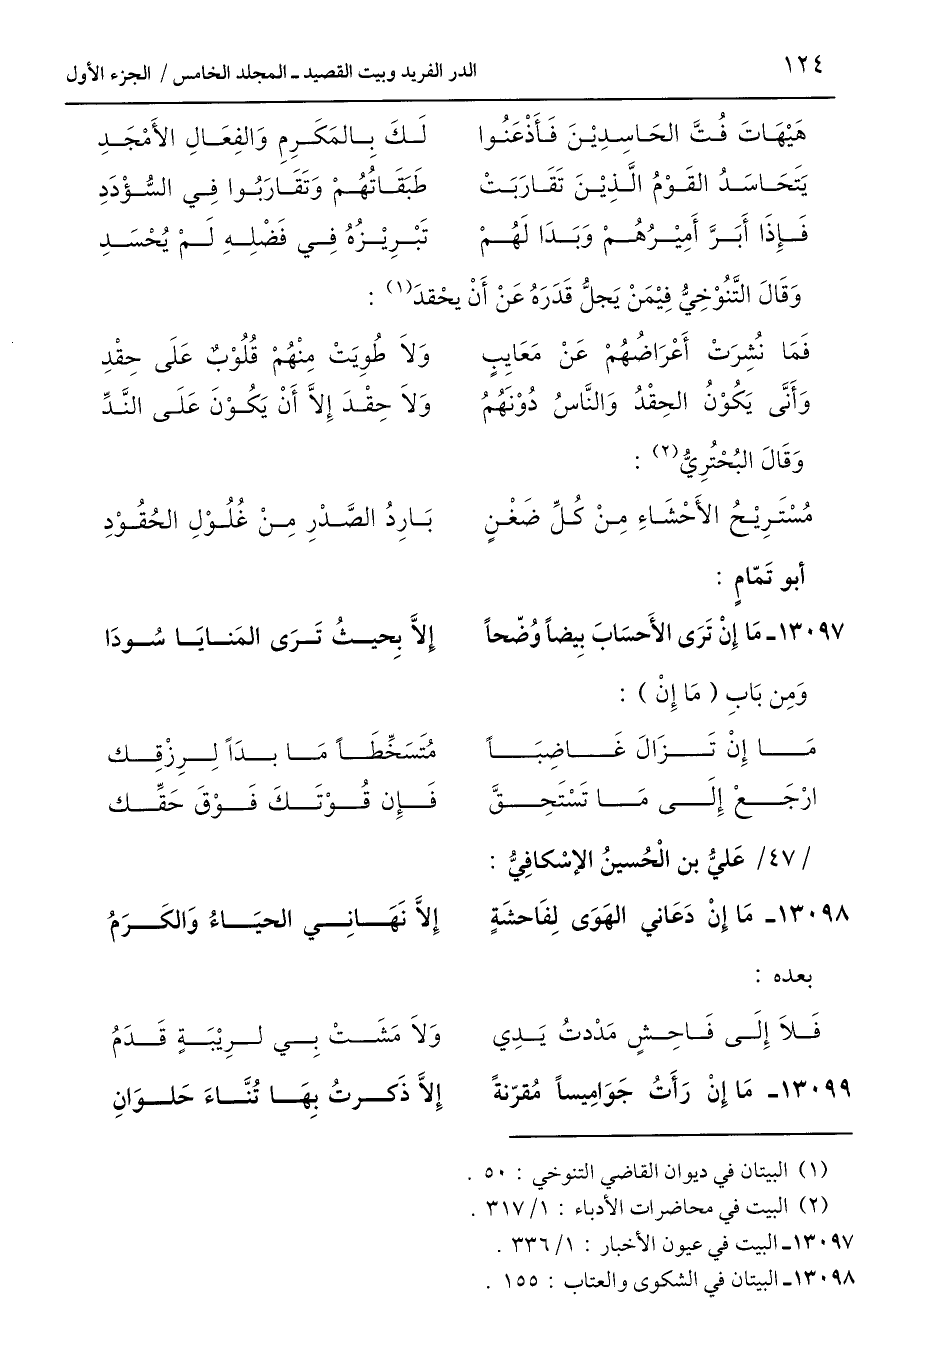 ١٢٤
الدر الفريد وبيت القصيد ـ المجلد الخامس / الجزء الأول
هَيْهَاتَ فُتَّ الحَاسِدِيْنَ فَأَذْعَنُوا لَكَ بِالمَكَرِمِ وَالفِعَالِ الأَمْجَدِ
يَتَحَاسَدُ القَوْمُ الَّذِيْنَ تَقَارَبَتْ طَبَقَاتُهُمْ وَتَقَارَبُوا فِي السُّؤْدَدِ
فَإِذَا أَبَرَّ أَمِيْرُهُمْ وَبَدَا لَهُمْ تَبْرِيْزُهُ فِي فَضْلِهِ لَمْ يُحْسَدِ
وَقَالَ التَّنُوْخِيُّ فِيْمَنْ يَجلُّ قَدَرَهُ عَنْ أَنْ يحْقدَ(١) :
فَمَا نُشِرَتْ أَعْرَاضُهُمْ عَنْ مَعَايِبٍ وَلاَ طُوِيَتْ مِنْهُمْ قُلُوْبٌ عَلَى حِقْدِ
وَأَنَّى يَكُوْنُ الحِقْدُ وَالنَّاسُ دُوْنَهُمُ وَلاَ حِقْدَ إِلاَّ أَنْ يَكُوْنَ عَلَى النَّدِّ
وَقَالَ البُحْتُرِيُّ(٢) :
مُسْتَرِيْحُ الأَحْشَاءِ مِنْ كُلِّ ضَغْنٍ بَارِدُ الصَّدْرِ مِنْ غُلُوْلِ الحُقُوْدِ
أبو تَمَّامٍ :
١٣٠٩٧ـ مَا إِنْ تَرَى الأَحسَابَ بِيضاً وُضَّحاً إِلاَّ بِحيثُ تَرَى المَنايَا سُودَا
وَمِن بَابِ ( مَا إِنْ ) :
مَا إِنْ تَزَالَ غَاضِبَاً مُتَسَخِّطَاً مَا بدَاً لِرِزْقِك
ارْجَعْ إِلَى مَا تَسْتَحِقَّ فَإِن قُوْتَكَ فَوْقَ حَقِّك
/ ٤٧/ عَليُّ بن الْحُسينُ الإِسْكافِيُّ :
١٣٠٩٨ـ مَا إِنْ دَعَاني الهَوَى لِفَاحشَةٍ إِلاَّ نَهَانِي الحيَاءُ وَالكَرَمُ
بعده :
فَلاَ إِلَى فَاحِشٍ مَدْدتُ يَدِي وَلاَ مَشَتْ بِي لرِيْبَةٍ قَدَمُ
١٣٠٩٩ـ مَا إِنْ رَأَتُ جَوَامِيساً مُقرّنةً إِلاَّ ذَكرتُ بِهَا تُنَّاءَ حَلوَانِ
(١) البيتان في ديوان القاضي التنوخي : ٥٠ .
(٢) البيت في محاضرات الأدباء : ١/ ٣١٧ .
١٣٠٩٧ـ البيت في عيون الأخبار : ١/ ٣٣٦ .
١٣٠٩٨ـ البيتان في الشكوى والعتاب : ١٥٥ .